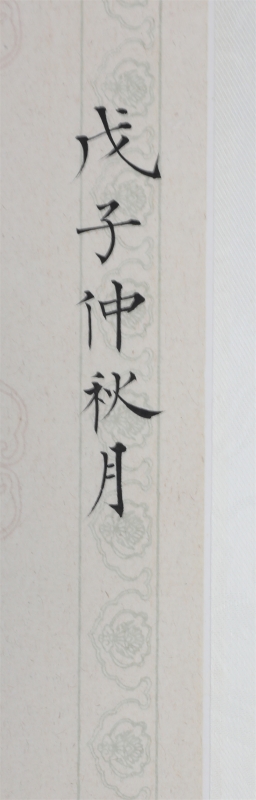 戊子仲秋月